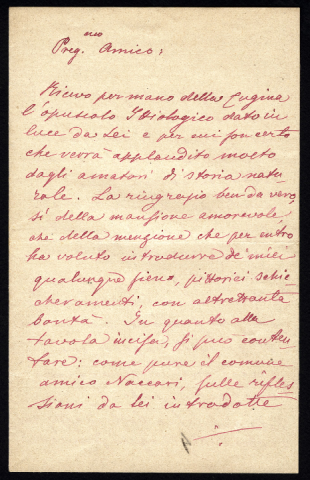 Preg.mo Amico,
Ricevo per mano della Cugina
l'opuscolo Ittiologico dato in
luce da Lei e per cui son certo
che verrà applaudito molto
dagli amatori di storia natu
rale. La ringrazio ben da vero,
sì della mansione amorevole
che della menzione che per entro
ha voluto introdurre de' miei
qualunque sieno, pittorici schic
cheramenti, con altrettanta
bontà. In quanto alla
tavola incisa, si può conten
tare: come pure il comune
amico Naccari, sulle rifles
sioni da Lei introdotte